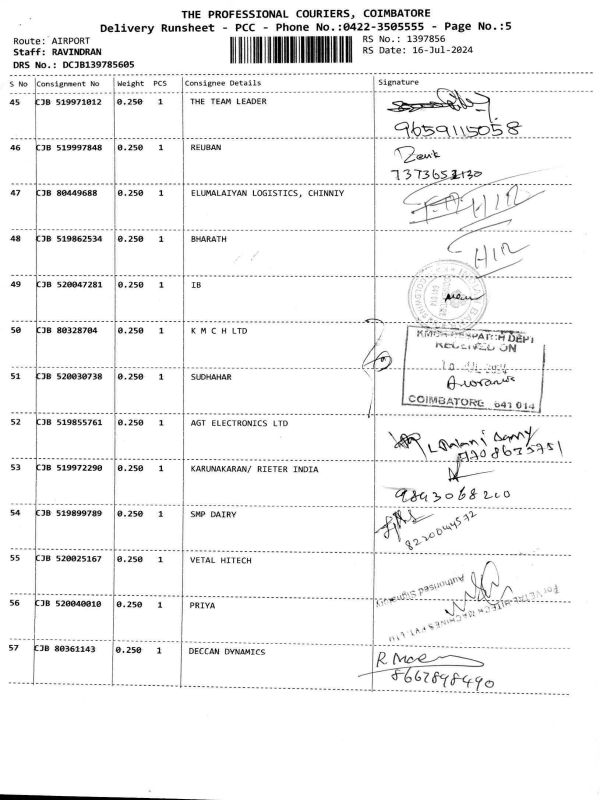 THE PROFESSIONAL COURIERS, COIMBATORE
Delivery Runsheet - PCC - Phone No.:0422-3505555 - Page No.:5
Route: AIRPORT RS No.: 1397856
Staff: RAVINDRAN RS Date: 16-Jul-2024
DRS No.: DCJB139785605
S No Consignment No Weight PCS Consignee Details Signature
45 CJB 519971012 0.250 1 THE TEAM LEADER
9659115058
46 CJB 519997848 0.250 1 REUBAN
47 CJB 80449688 0.250 1 ELUMALAIYAN LOGISTICS, CHINNIY
48 CJB 519862534 0.250 1 BHARATH
49 CJB 520047281 0.250 1 IB
50 CJB 80328704 0.250 1 K M C H LTD
DESPATCH DEPT
RECEIVED ON
51 CJB 520030738 0.250 1 SUDHAHAR
COIMBATORE 641 014
52 CJB 519855761 0.250 1 AGT ELECTRONICS LTD
53 CJB 519972290 0.250 1 KARUNAKARAN/ RIETER INDIA
9843068200
54 CJB 519899789 0.250 1 SMP DAIRY
8220044572
55 CJB 520025167 0.250 1 VETAL HITECH
Authorised Signatory
56 CJB 520040010 0.250 1 PRIYA
For VETAL HITECH MACHINES PVT. LTD
57 CJB 80361143 0.250 1 DECCAN DYNAMICS
8667898490